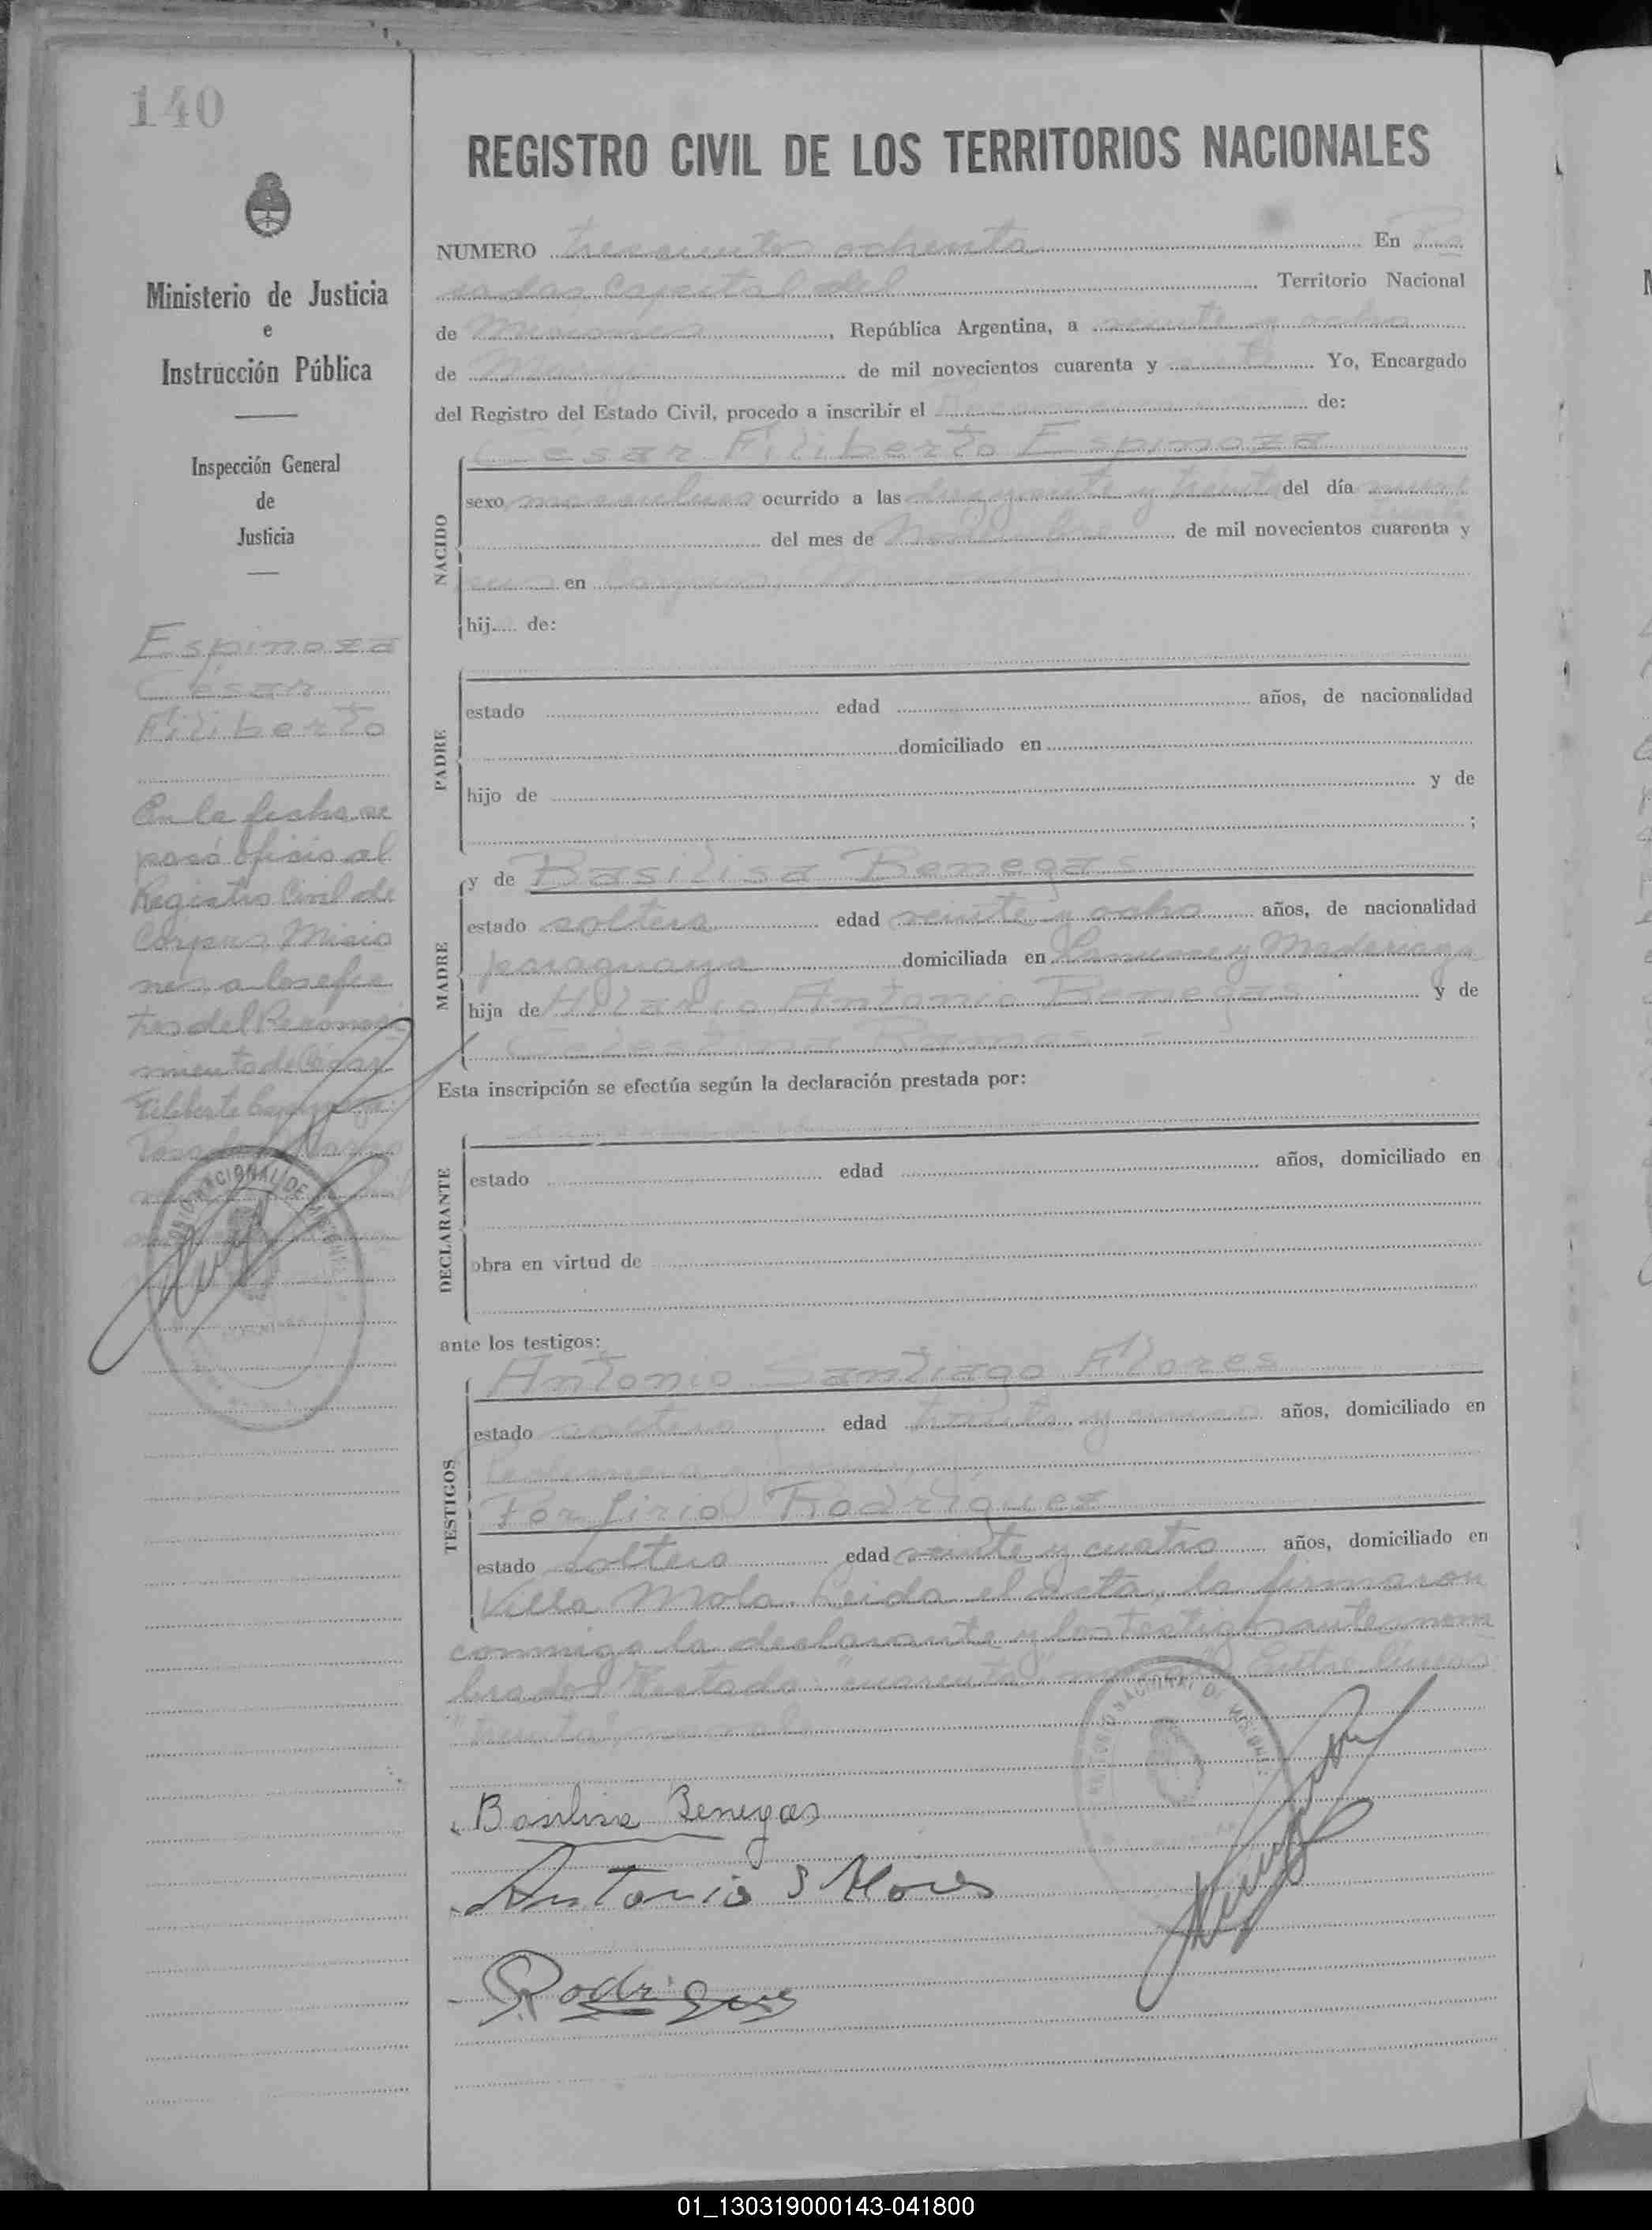 140
REGISTRO CIVIL DE LOS TERRITORIOS NACIONALES
Ministerio de Justicia
e
Instrucción Pública
Inspección General
de
Justicia
Espinoza
César
Filiberto
En la fecha se
pasó oficio al
Registro Civil de
Corpus Misio
nes a los efec
tos del Reconoci
miento de César
Filiberto
NUMERO trescientos ochenta En Po
sadas Capital del Territorio Nacional
de Misiones, República Argentina, a veinte y ocho
de de mil novecientos cuarenta y Yo, Encargado
del Registro del Estado Civil, procedo a inscribir el de:
César Filiberto Espinoza
NACIDO
sexo masculino ocurrido a las y treinta del día
treinta
del mes de de mil novecientos cuarenta y
en
hij de:
PADRE
estado edad años, de nacionalidad
domiciliado en
hijo de y de
;
MADRE
y de Basilisa Benegas
estado soltera edad veinte y ocho años, de nacionalidad
paraguaya domiciliada en y Madariaga
hija de Hilario Antonio Benegas y de
Celestina Ramos
Esta inscripción se efectúa según la declaración prestada por:
DECLARANTE
estado edad años, domiciliado en
obra en virtud de
ante los testigos:
TESTIGOS
Antonio Santiago Flores
estado soltero edad treinta y años, domiciliado en
Porfirio Rodriguez
estado soltero edad veinte y cuatro años, domiciliado en
Villa Mola. Leida el acta, la firmaron
conmigo la declarante y los testigos antes nom
brados Testado: "cuarenta" no vale Entre líneas
"treinta" vale
Basilisa Benegas
Antonio S Flores
Rodriguez
01_130319000143-041800